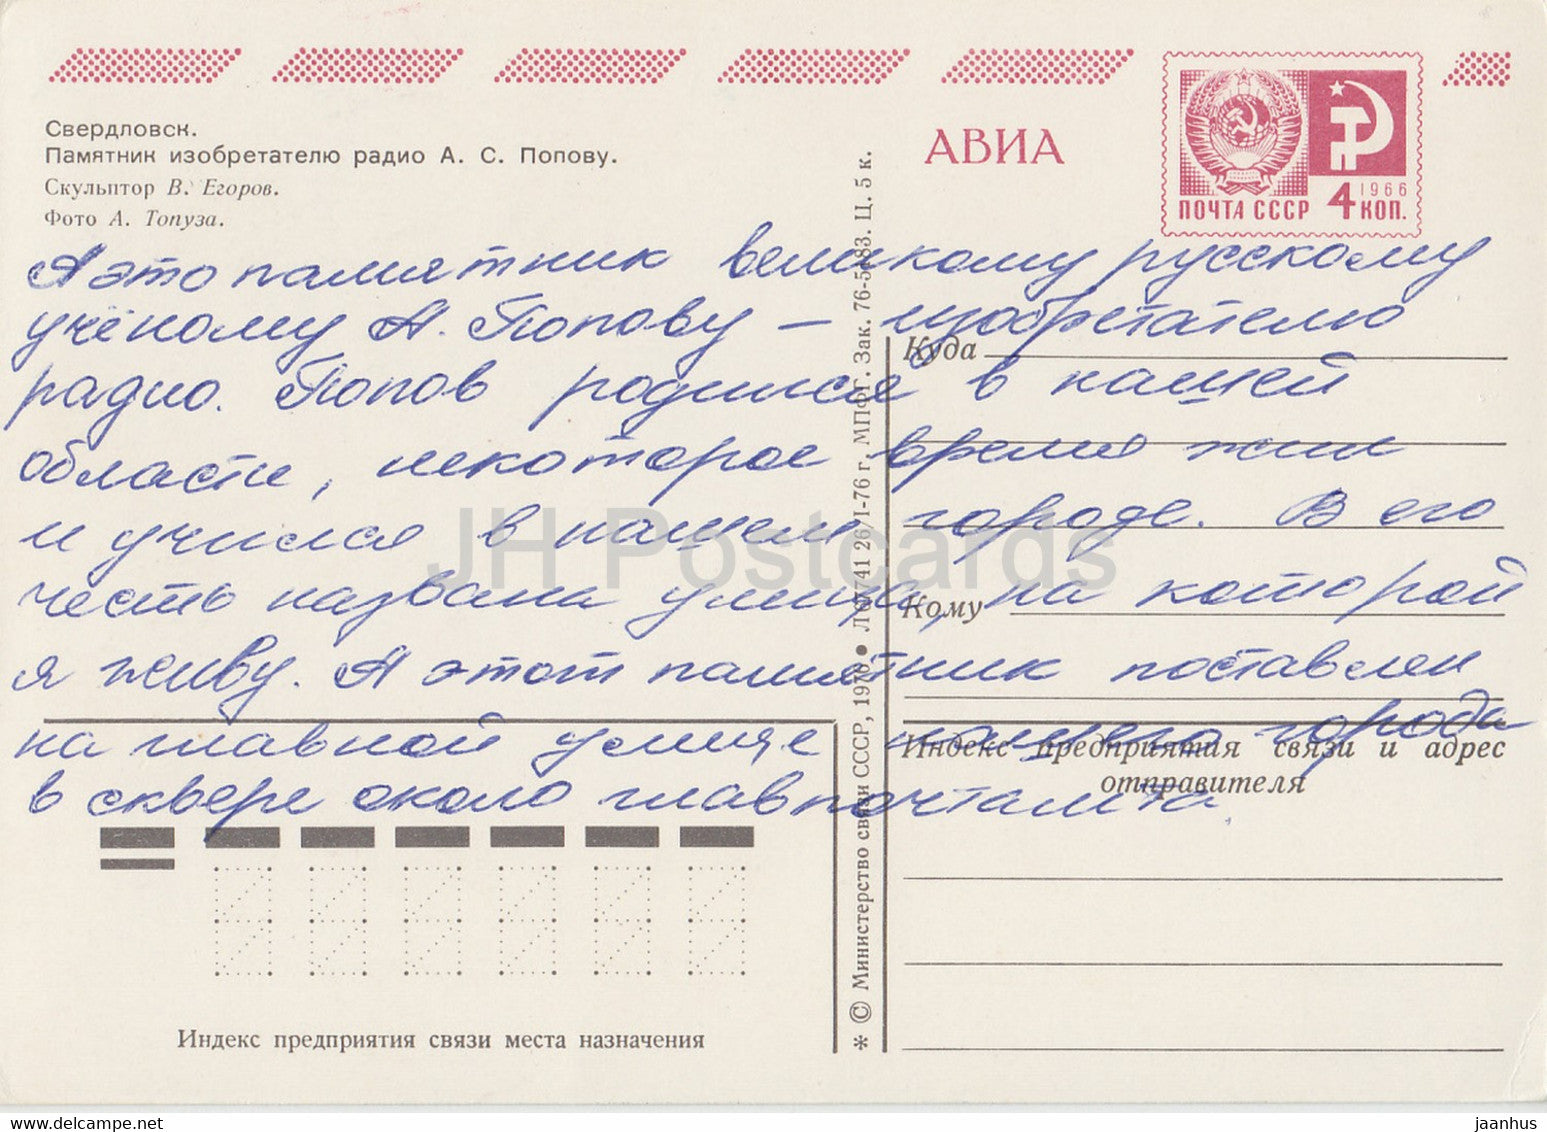 Свердловск.
Памятник изобретателю радио А. С. Попову.
Скульптор В. Егоров.
Фото А. Топуза.
АВИА
ПОЧТА СССР 4 КОП.
1966
А это памятник великому русскому
учёному А. Попову – изобретателю
радио. Попов родился в нашей
области, некоторое время жил
и учился в нашем городе. В его
честь названа улица, на которой
я живу. А этот памятник поставлен
на главной улице нашего города
в сквере около главпочтамта.
Куда
Кому
Индекс предприятия связи и адрес
отправителя
Индекс предприятия связи места назначения
* © Министерство связи СССР, 1976 ● 26/I-76 г. МПФГ. Зак. Ц. 5 к.
JH Postcards
jaanhus